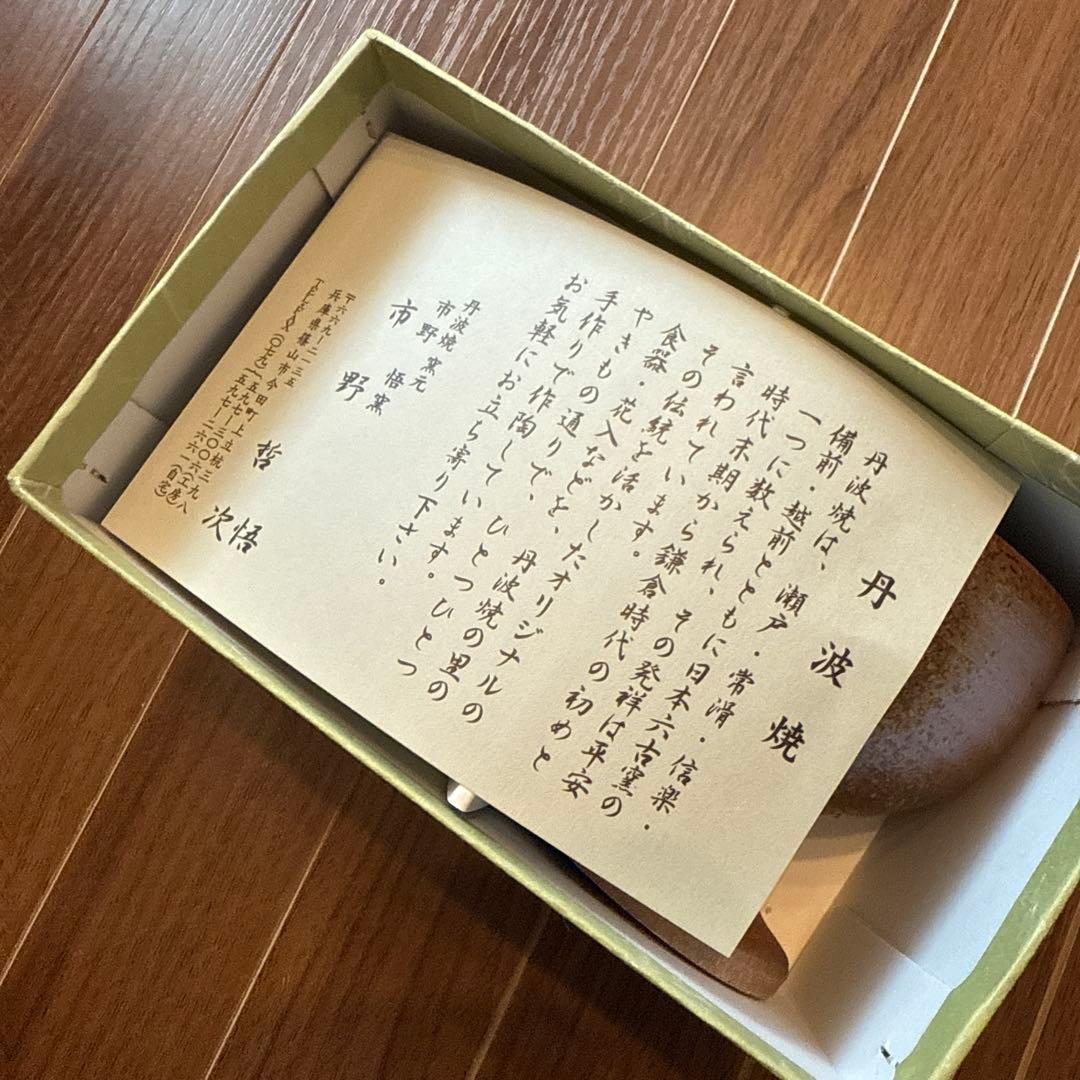 丹波焼
丹波焼は、瀬戸・常滑・信楽・
備前・越前とともに日本六古窯の
一つに数えられ、その発祥は平安
時代末期から鎌倉時代の初めと
言われています。
その伝統を活かしたオリジナルの
食器・花入などを、丹波焼の里の
やきもの通りで、ひとつひとつ
手作りで作陶しています。
お気軽にお立ち寄り下さい。
丹波焼 窯元
市野 悟窯
市野 哲次
悟
〒六六九ー二一三五
兵庫県篠山市今田町上立杭三九八
TEL・FAX(〇七九)五九七ー三〇〇六(工房)
五九七ー二六六一(自宅)